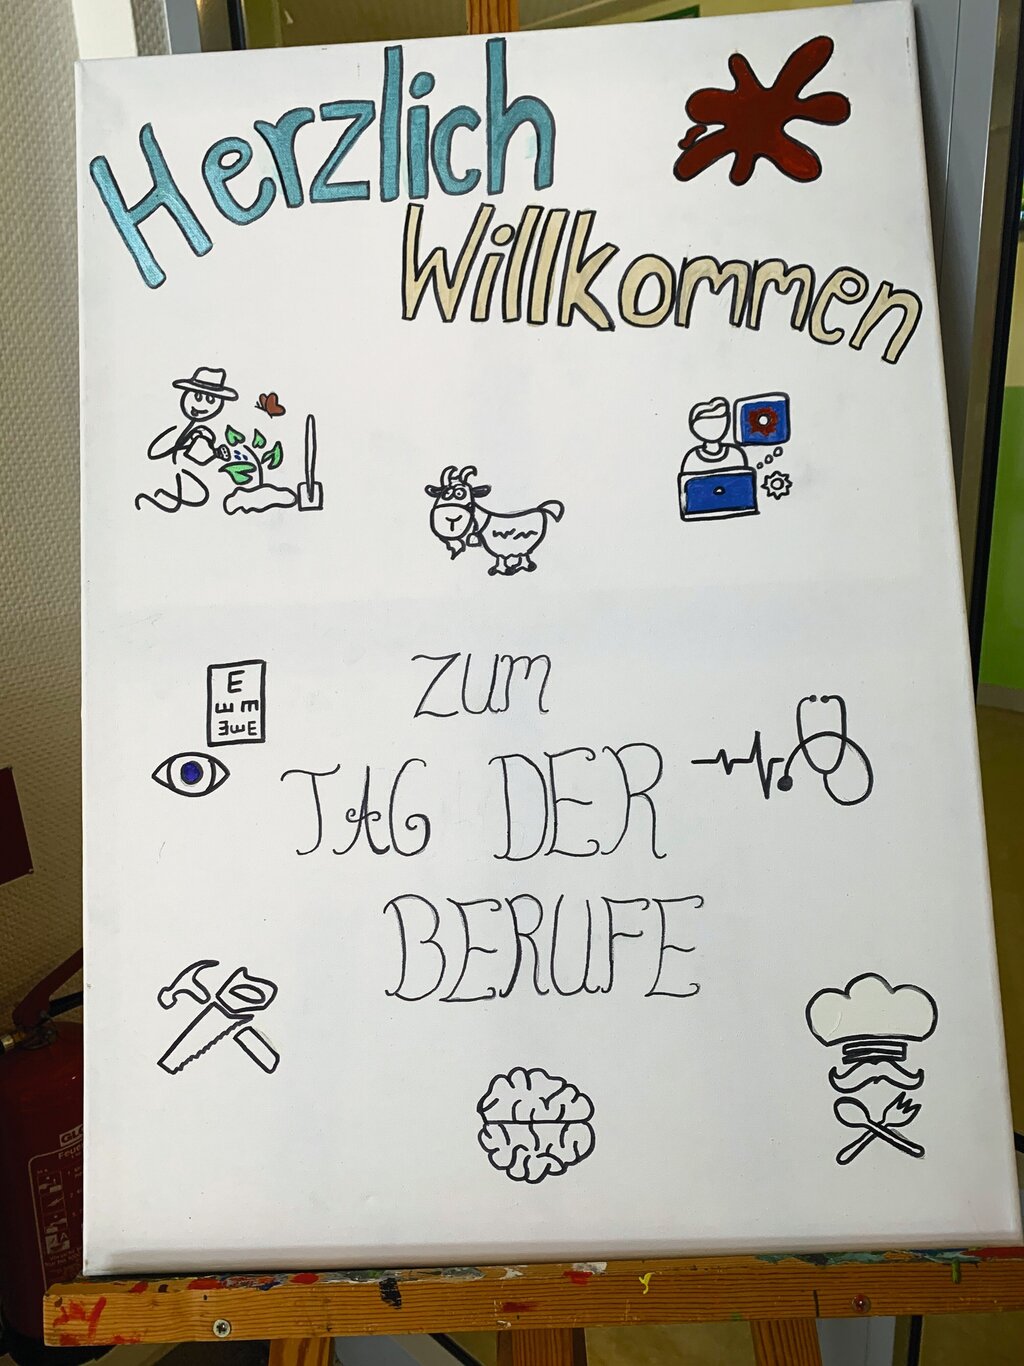 Herzlich
Willkommen
E
E E
E E E
ZUM
TAG DER
BERUFE